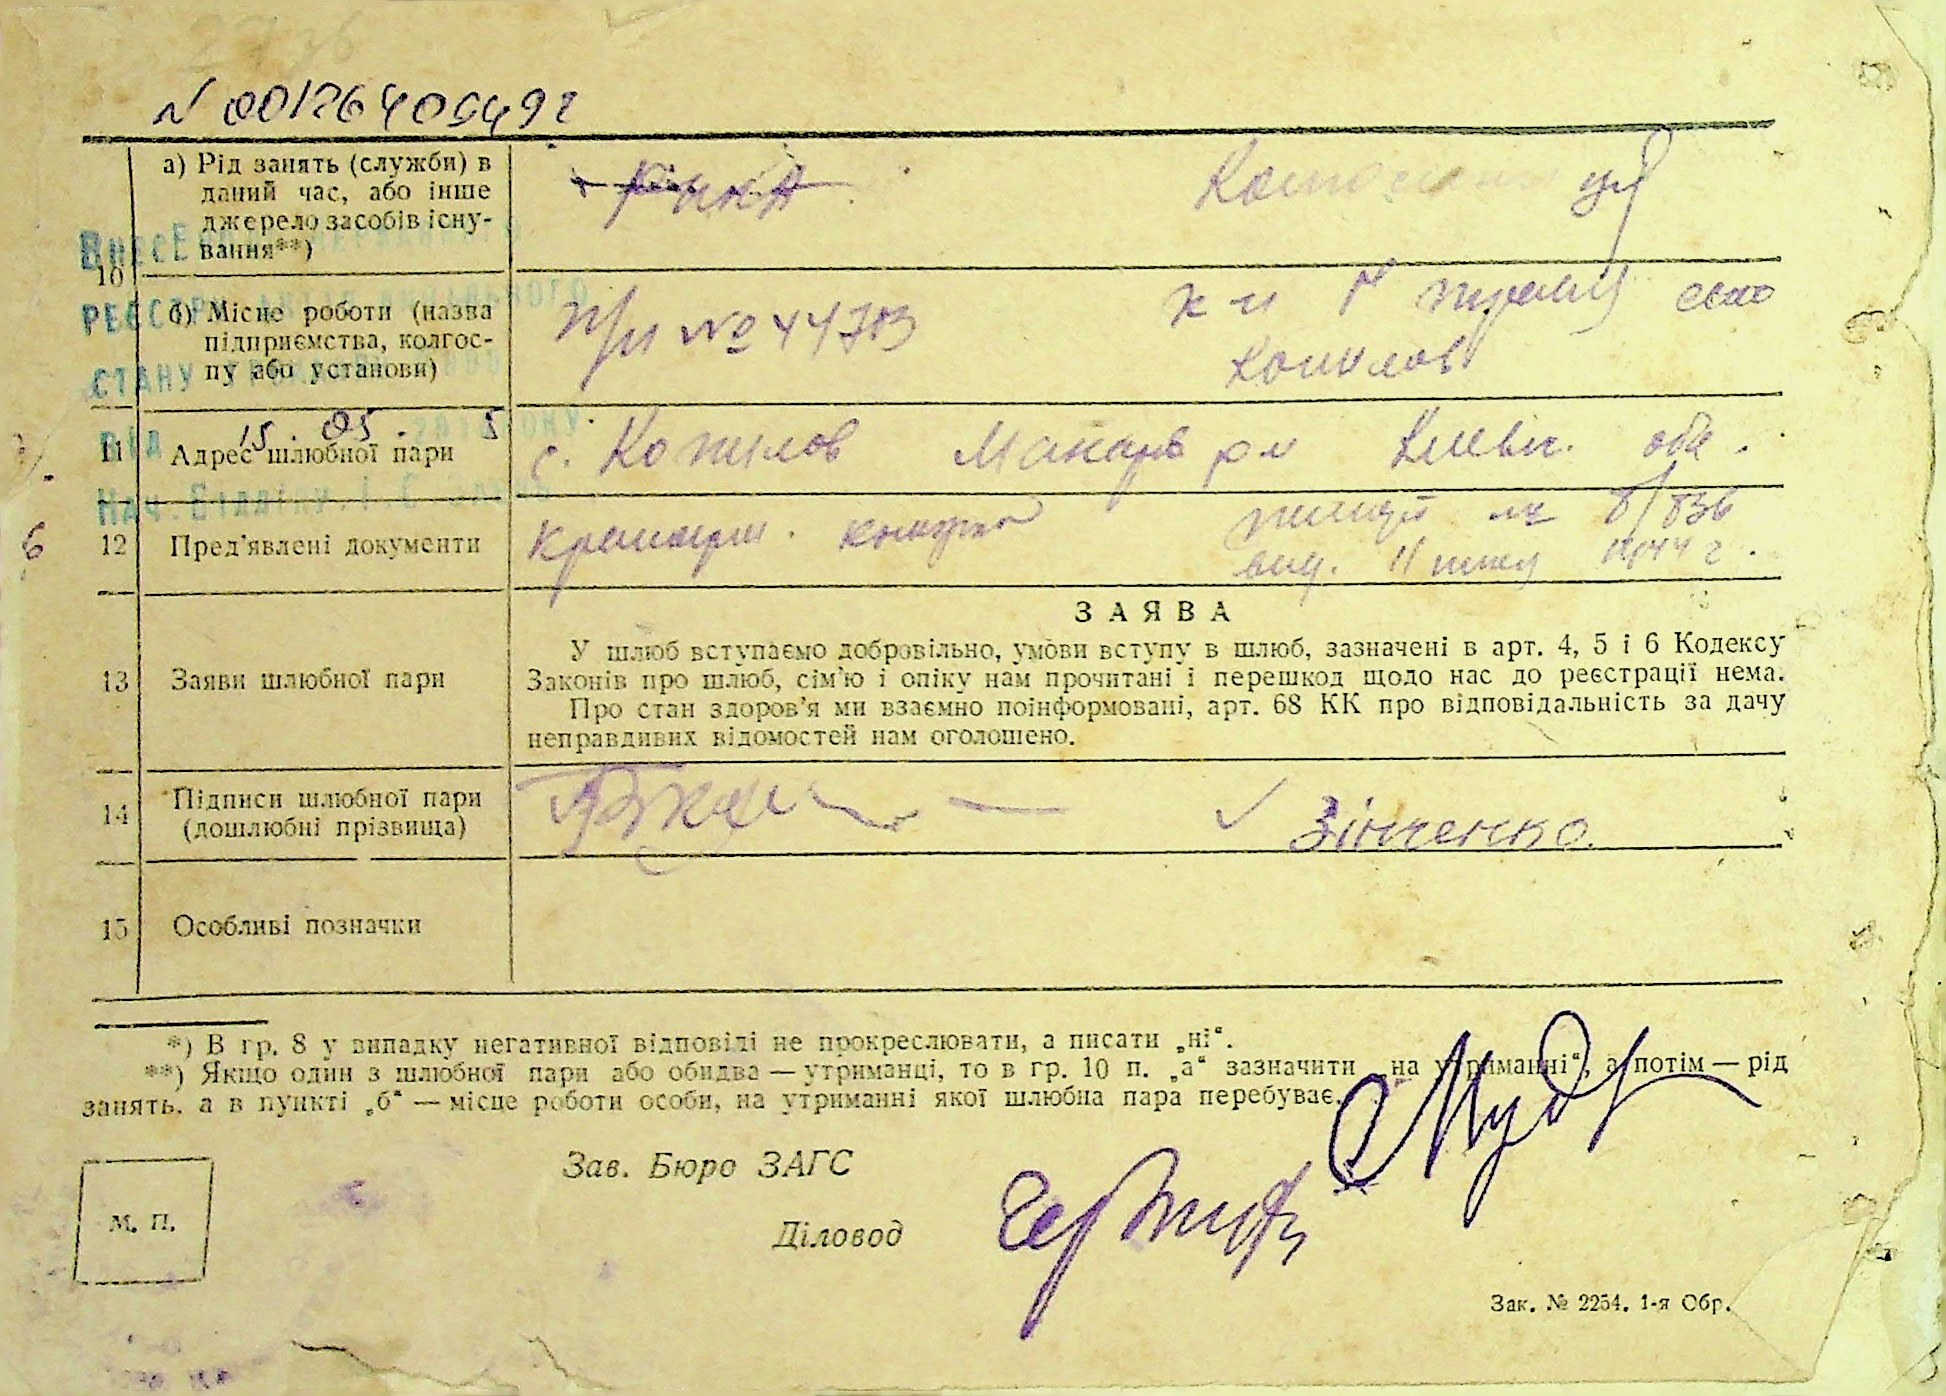 N 00126405492
а) Рід занять (служби) в
даний час, або інше
джерело засобів існу-
вання**)
РККА
ВНЕСЕ
10
РЕЄСТР
СТАНУ
ВІД 15. 05.
НАЧ. ВІДДІЛУ
б) Місце роботи (назва
підприємства, колгос-
пу або установи)
п/п № 44783
к-п село
Копилов
11 Адрес шлюбної пари
с. Копилов Макарів р-н Київс. обл.
12 Пред'явлені документи
6
Красноарм. книжка
вид. 1944 г.
13 Заяви шлюбної пари
ЗАЯВА
У шлюб вступаємо добровільно, умови вступу в шлюб, зазначені в арт. 4, 5 і 6 Кодексу
Законів про шлюб, сім'ю і опіку нам прочитані і перешкод щодо нас до реєстрації нема.
Про стан здоров'я ми взаємно поінформовані, арт. 68 КК про відповідальність за дачу
неправдивих відомостей нам оголошено.
14 Підписи шлюбної пари
(дошлюбні прізвища)
Зінченко.
15 Особливі позначки
*) В гр. 8 у випадку негативної відповіді не прокреслювати, а писати „ні“.
**) Якщо один з шлюбної пари або обидва — утриманці, то в гр. 10 п. „а“ зазначити „на утриманні“, а потім — рід
занять, а в пункті „б“ — місце роботи особи, на утриманні якої шлюбна пара перебуває.
Зав. Бюро ЗАГС
М. П.
Діловод
Зак. № 2254. 1-я Обр.